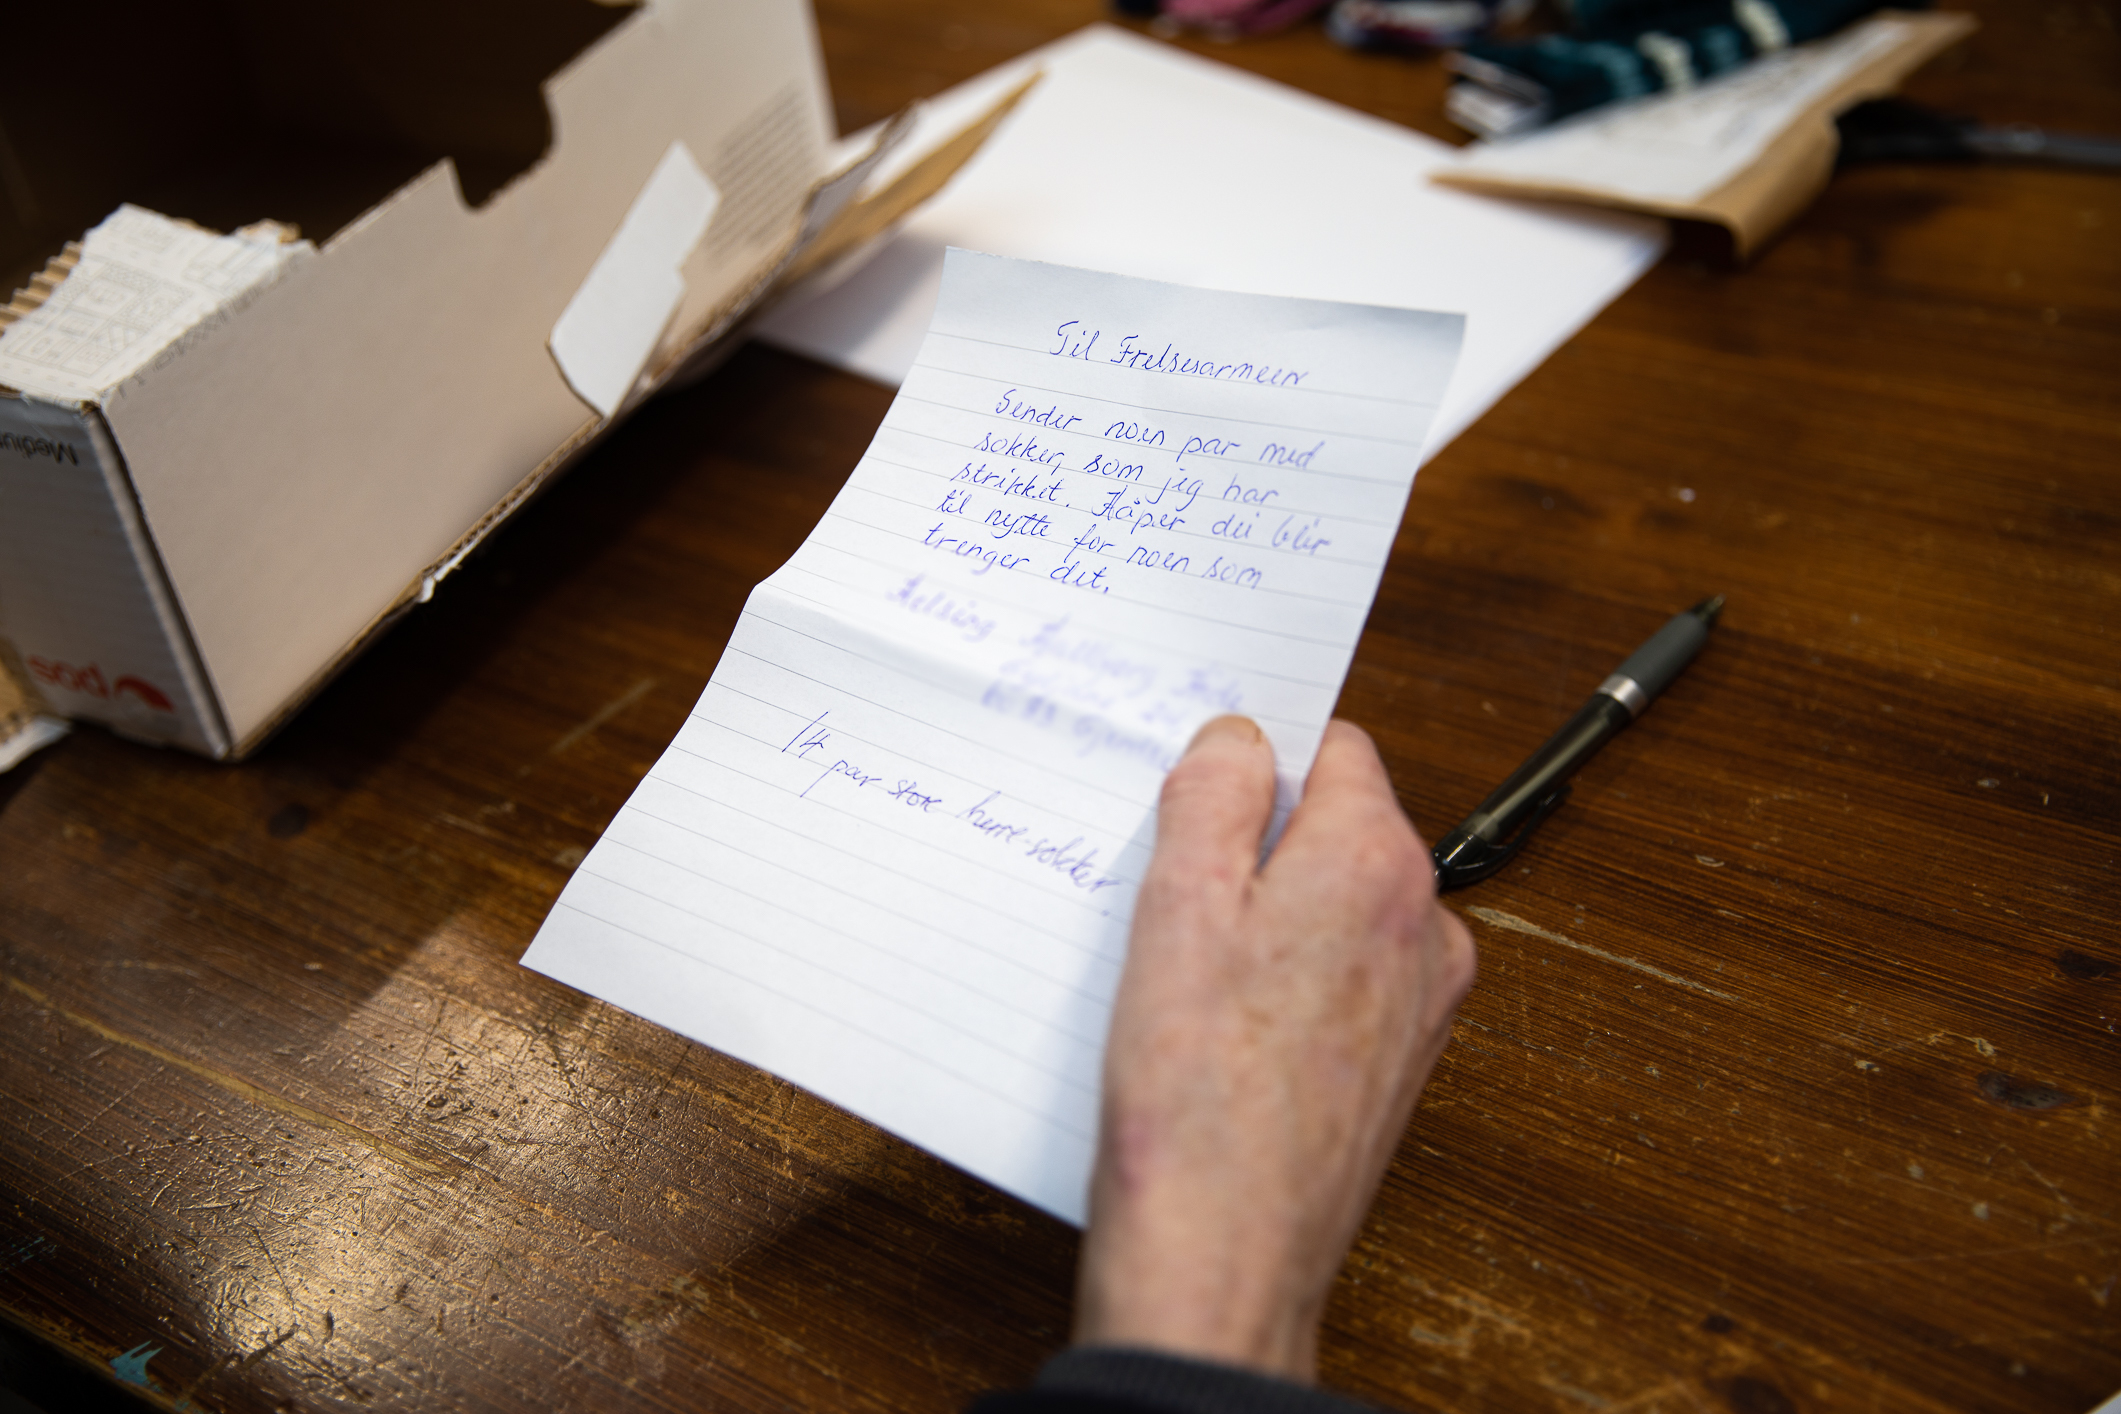 Til Frelsesarmeen
Sender noen par med
sokker, som jeg har
strikket. Håper dei blir
til nytte for noen som
trenger det.
14 par store herre-sokker.
Medium
pos